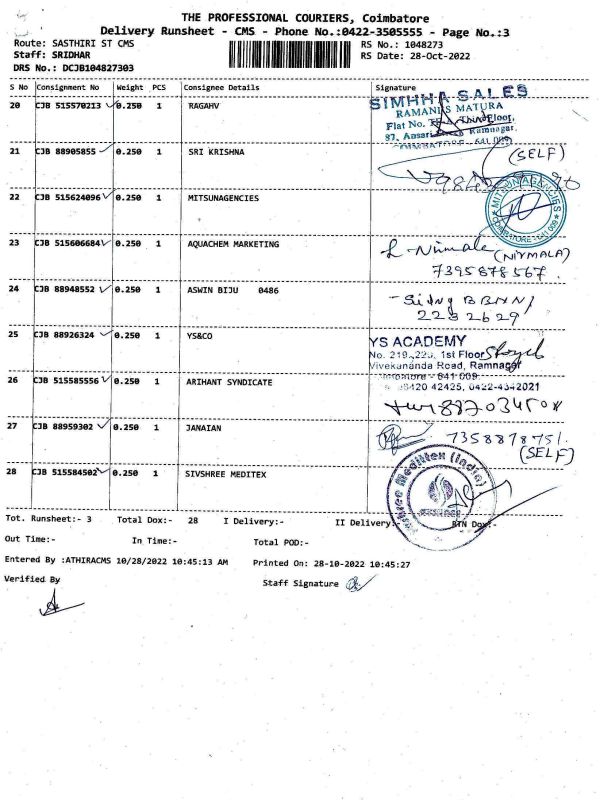 THE PROFESSIONAL COURIERS, Coimbatore
Delivery Runsheet - CMS - Phone No.:0422-3505555 - Page No.:3
Route: SASTHIRI ST CMS RS No.: 1048273
Staff: SRIDHAR RS Date: 28-Oct-2022
DRS No.: DCJB104827303
S No Consignment No Weight PCS Consignee Details Signature
20 CJB 515570213 0.250 1 RAGAHV
SIMHHA SALES
RAMANI'S MATURA
Flat No. Third Floor,
87, Ansari Ramnagar.
COIMBATORE - 641 009
21 CJB 88905855 0.250 1 SRI KRISHNA (SELF)
22 CJB 515624096 0.250 1 MITSUNAGENCIES
MITSUN AGENCIES
COIMBATORE - 641 009
23 CJB 515606684 0.250 1 AQUACHEM MARKETING
L. Nirmala (NIYMALA)
7395878567.
24 CJB 88948552 0.250 1 ASWIN BIJU 0486
2232629
25 CJB 88926324 0.250 1 YS&CO
YS ACADEMY
No. 219, 220, 1st Floor
Vivekananda Road, Ramnagar
Coimbatore - 641 009.
98420 42425, 0422-4342021
26 CJB 515585556 0.250 1 ARIHANT SYNDICATE
27 CJB 88959302 0.250 1 JANAIAN 7358878751.
(SELF)
28 CJB 515584502 0.250 1 SIVSHREE MEDITEX
Meditex (India)
Tot. Runsheet:- 3 Total Dox:- 28 I Delivery:- II Delivery:- RTN Dox:-
Out Time:- In Time:- Total POD:-
Entered By :ATHIRACMS 10/28/2022 10:45:13 AM Printed On: 28-10-2022 10:45:27
Verified By Staff Signature